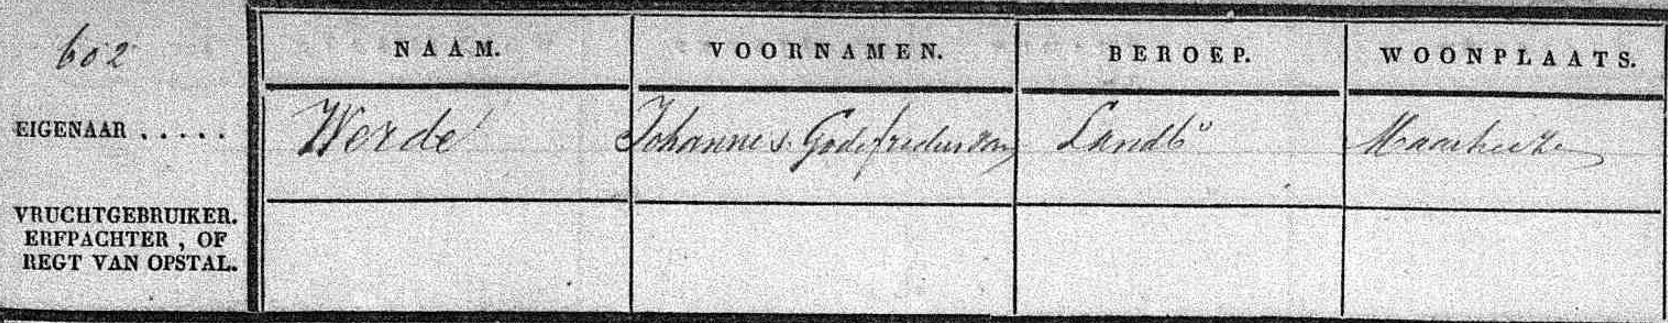 602
NAAM. VOORNAMEN. BEROEP. WOONPLAATS.
EIGENAAR ..... Werde Johannes Godefredus van Landbr Maarheeze
VRUCHTGEBRUIKER.
ERFPACHTER, OF
REGT VAN OPSTAL.